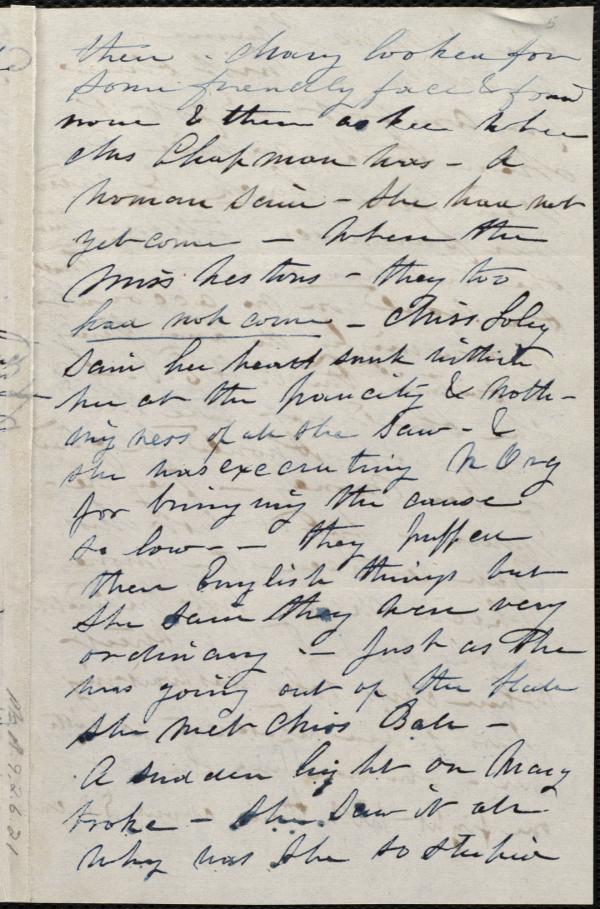 5
there - Mary looked for
some friendly face & found
none & then asked where
Mrs Chapman was - A
woman said - she had not
yet come - Where the
Miss Westons - they too
had not come - Miss Soley
said her heart sunk within
her at the paucity & noth-
ingness of all she saw - &
she was execrating N Org
for bringing the cause
so low - - they puffed
their English things but
she said they were very
ordinary - Just as she
was going out of the
she met Miss Ball -
A sudden light on Mary
broke - she saw it all
why was she so stupid
Ms. A.9.2.6.21